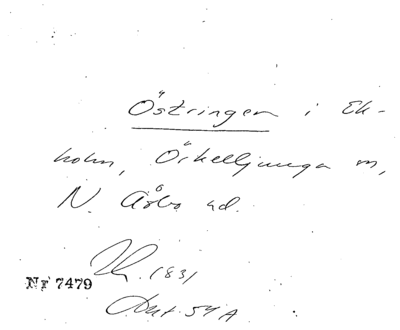 Östringen i Ek-
holm, Örkelljunga sn,
N. Åsbo hd.
1831
Nr 7479
54 A